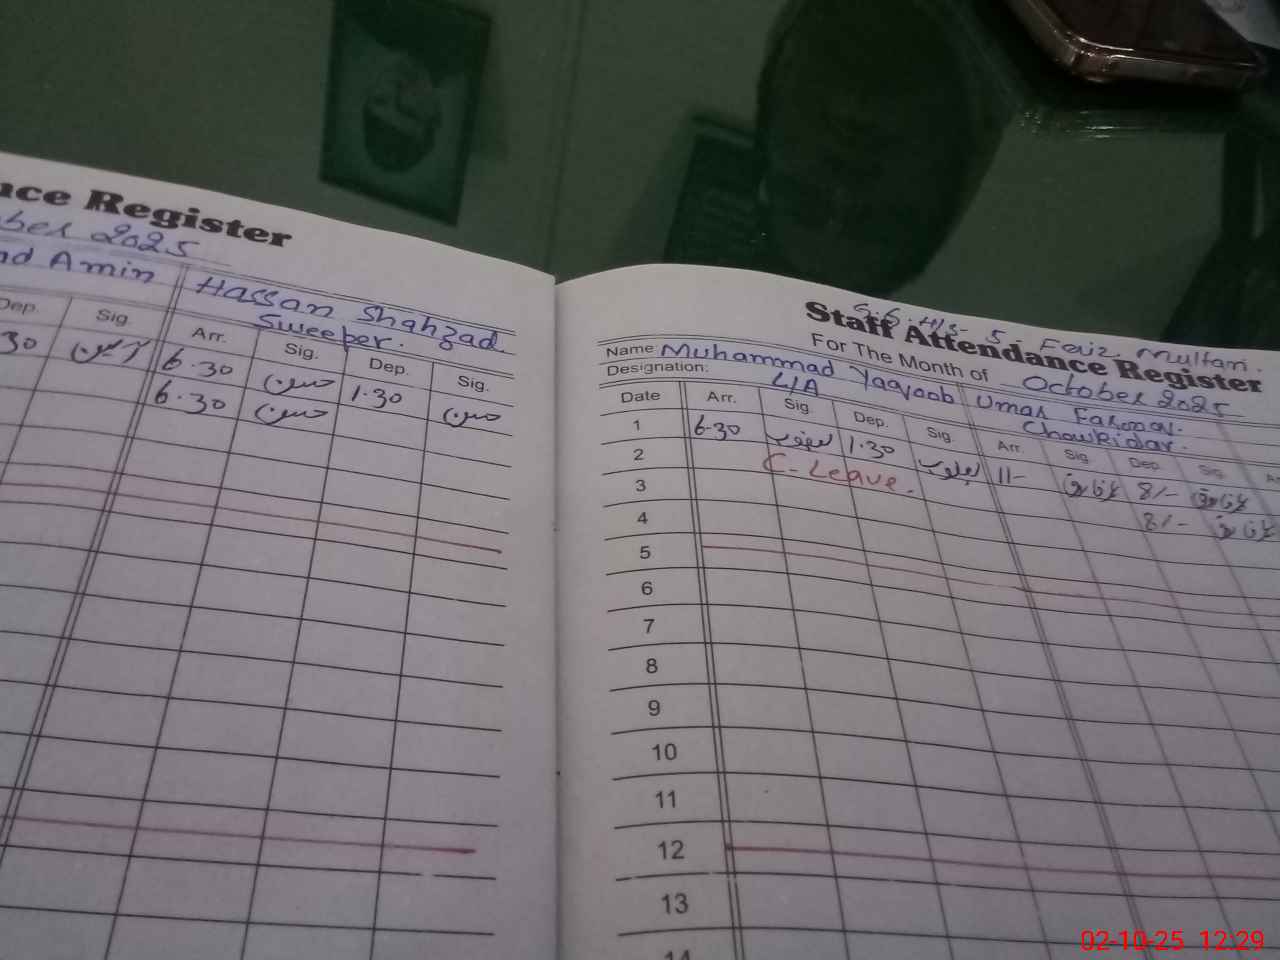 nce Register
ber 2025
nd Amin
Hassan Shahzad
Sweeper.
Dep. Sig. Arr. Sig. Dep. Sig.
30 6.30 حسن 1.30 حسن
6.30 حسن
Staff Attendance Register
For The Month of October 2025
Name Muhammad Yaqoob Umar Farooq.
Designation: L/A Chowkidar.
Date Arr. Sig. Dep. Sig. Arr. Sig. Dep. Sig.
1 6.30 یعقوب 1.30 یعقوب 11/- 8/-
2 C-Leave. 8/-
3
4
5
6
7
8
9
10
11
12
13
14
02-10-25 12:29